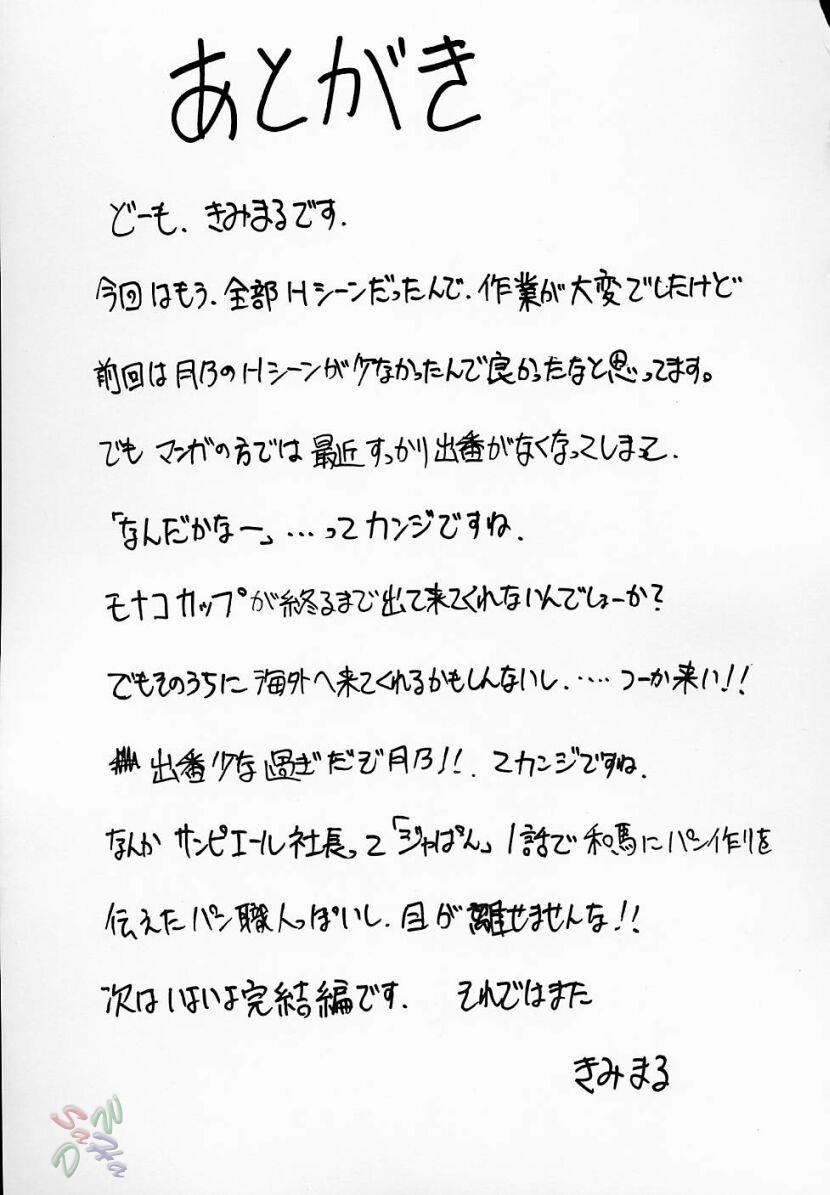 あとがき
どーも、きみまるです.
今回はもう、全部Hシーンだったんで、作業が大変でしたけど
前回は月乃のHシーンが少なかったんで良かったなと思ってます。
でも マンガの方では最近すっかり出番がなくなってしまって、
「なんだかなー」…ってカンジですね、
モナコカップが終るまで出て来てくれないんでしょーか?
でもそのうちに海外へ来てくれるかもしんないし、……つーか来い!!
出番少な過ぎだぞ月乃!!、てカンジですね、
なんか サンピエール社長って「ジャぱん」1話で和馬にパン作りを
伝えたパン職人っぽいし、目が離せませんな!!
次はいよいよ完結編です. それではまた
きみまる
SaHa